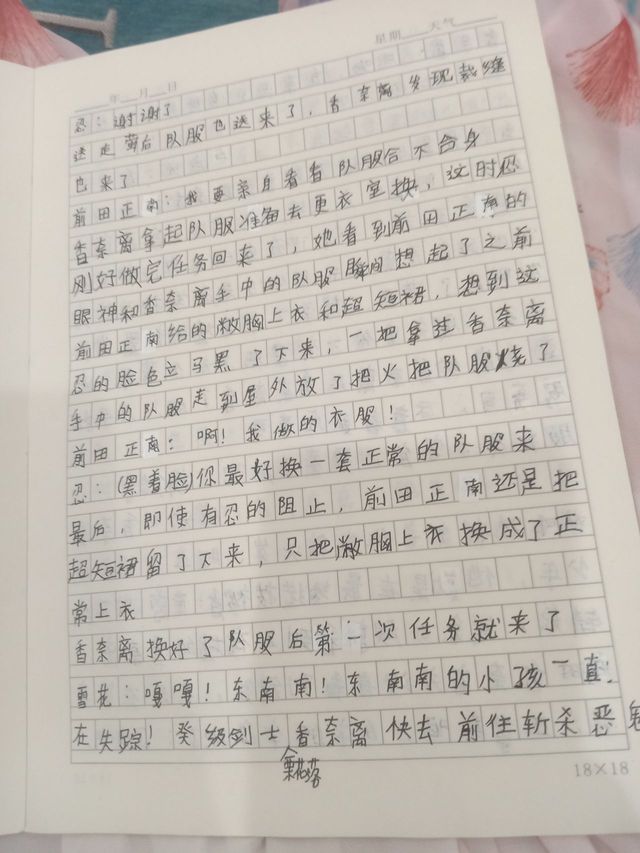 星期 天气
年 月 日
忍：谢谢了
送走萤后队服也送来了，香奈离发现裁缝
也来了
前田正南：我要亲自看看队服合不合身
香奈离拿起队服准备去更衣室换，这时忍
刚好做完任务回来了，她看到前田正南的
眼神和香奈离手中的队服瞬间想起了之前
前田正南给的敞胸上衣和超短裙，想到这
忍的脸色立马黑了下来，一把拿过香奈离
手中的队服走到屋外放了把火把队服烧了
前田正南：啊！我做的衣服！
忍：(黑着脸)你最好换一套正常的队服来
最后，即使有忍的阻止，前田正南还是把
超短裙留了下来，只把敞胸上衣换成了正
常上衣
香奈离换好了队服后第一次任务就来了
雪花：嘎嘎！东南南！东南南的小孩一直
在失踪！癸级剑士香奈离快去前往斩杀恶鬼
18×18